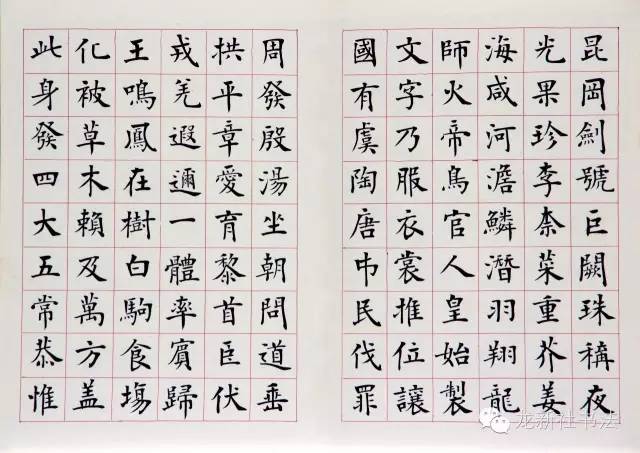 昆岡劍號巨闕珠稱夜
光果珍李柰菜重芥姜
海咸河澹鱗潛羽翔龍
師火帝鳥官人皇始製
文字乃服衣裳推位讓
國有虞陶唐弔民伐罪
周發殷湯坐朝問道垂
拱平章愛育黎首臣伏
戎羌遐邇一體率賓歸
王鳴鳳在樹白駒食塲
化被草木賴及萬方盖
此身發四大五常恭惟
龙新社书法